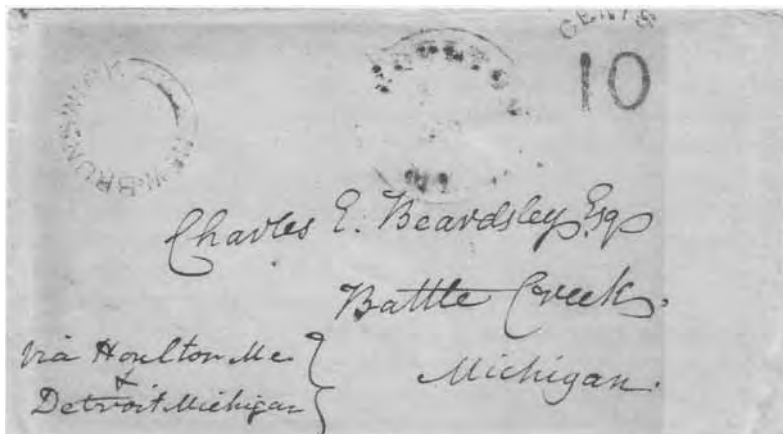 CENTS
10
NEW-BRUNSWICK
Charles E. Beardsley Esq
Battle Creek.
Michigan.
via Houlton Me.
&
Detroit Michigan